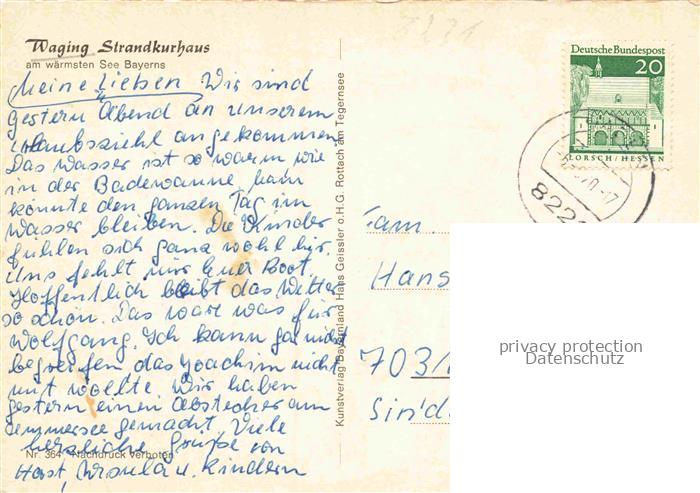 Waging Strandkurhaus
am wärmsten See Bayerns
Meine Lieben Wir sind
gestern Abend an unserem
Urlaubsziehl angekommen
Das Wasser ist so warm wie
in der Badewanne, man
könnte den ganzen Tag im
Wasser bleiben. Die Kinder
fühlen sich ganz wohl hir.
Uns fehlt nur Euer Boot.
Hoffentlich bleibt das Wetter
so schön. Das wäre was für
Wolfgang. Ich kann gar nicht
begreifen das Joachim nicht
mit wollte. Wir haben
gestern einen Abstecher am
gemacht. Viele
herzliche Grüße von
Horst, Ursula u. Kindern
Nr. 364 Nachdruck verboten
Kunstverlag Bayernland Hans Geissler o.H.G. Rottach am Tegernsee
8221
Deutsche Bundespost
20
LORSCH/HESSEN
822
Fam.
Hans
703
Sind
privacy protection
Datenschutz